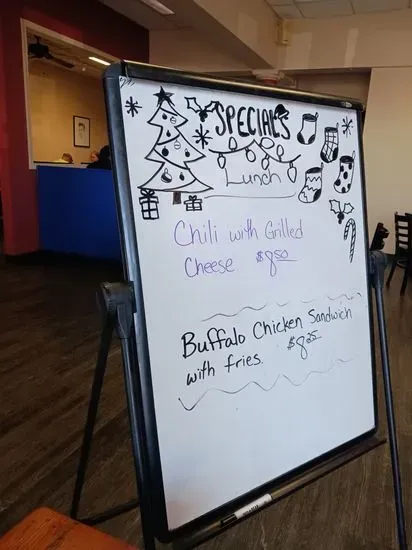 SPECIALS
Lunch
Chili with Grilled
Cheese $8.50
Buffalo Chicken Sandwich
with fries. $8.25